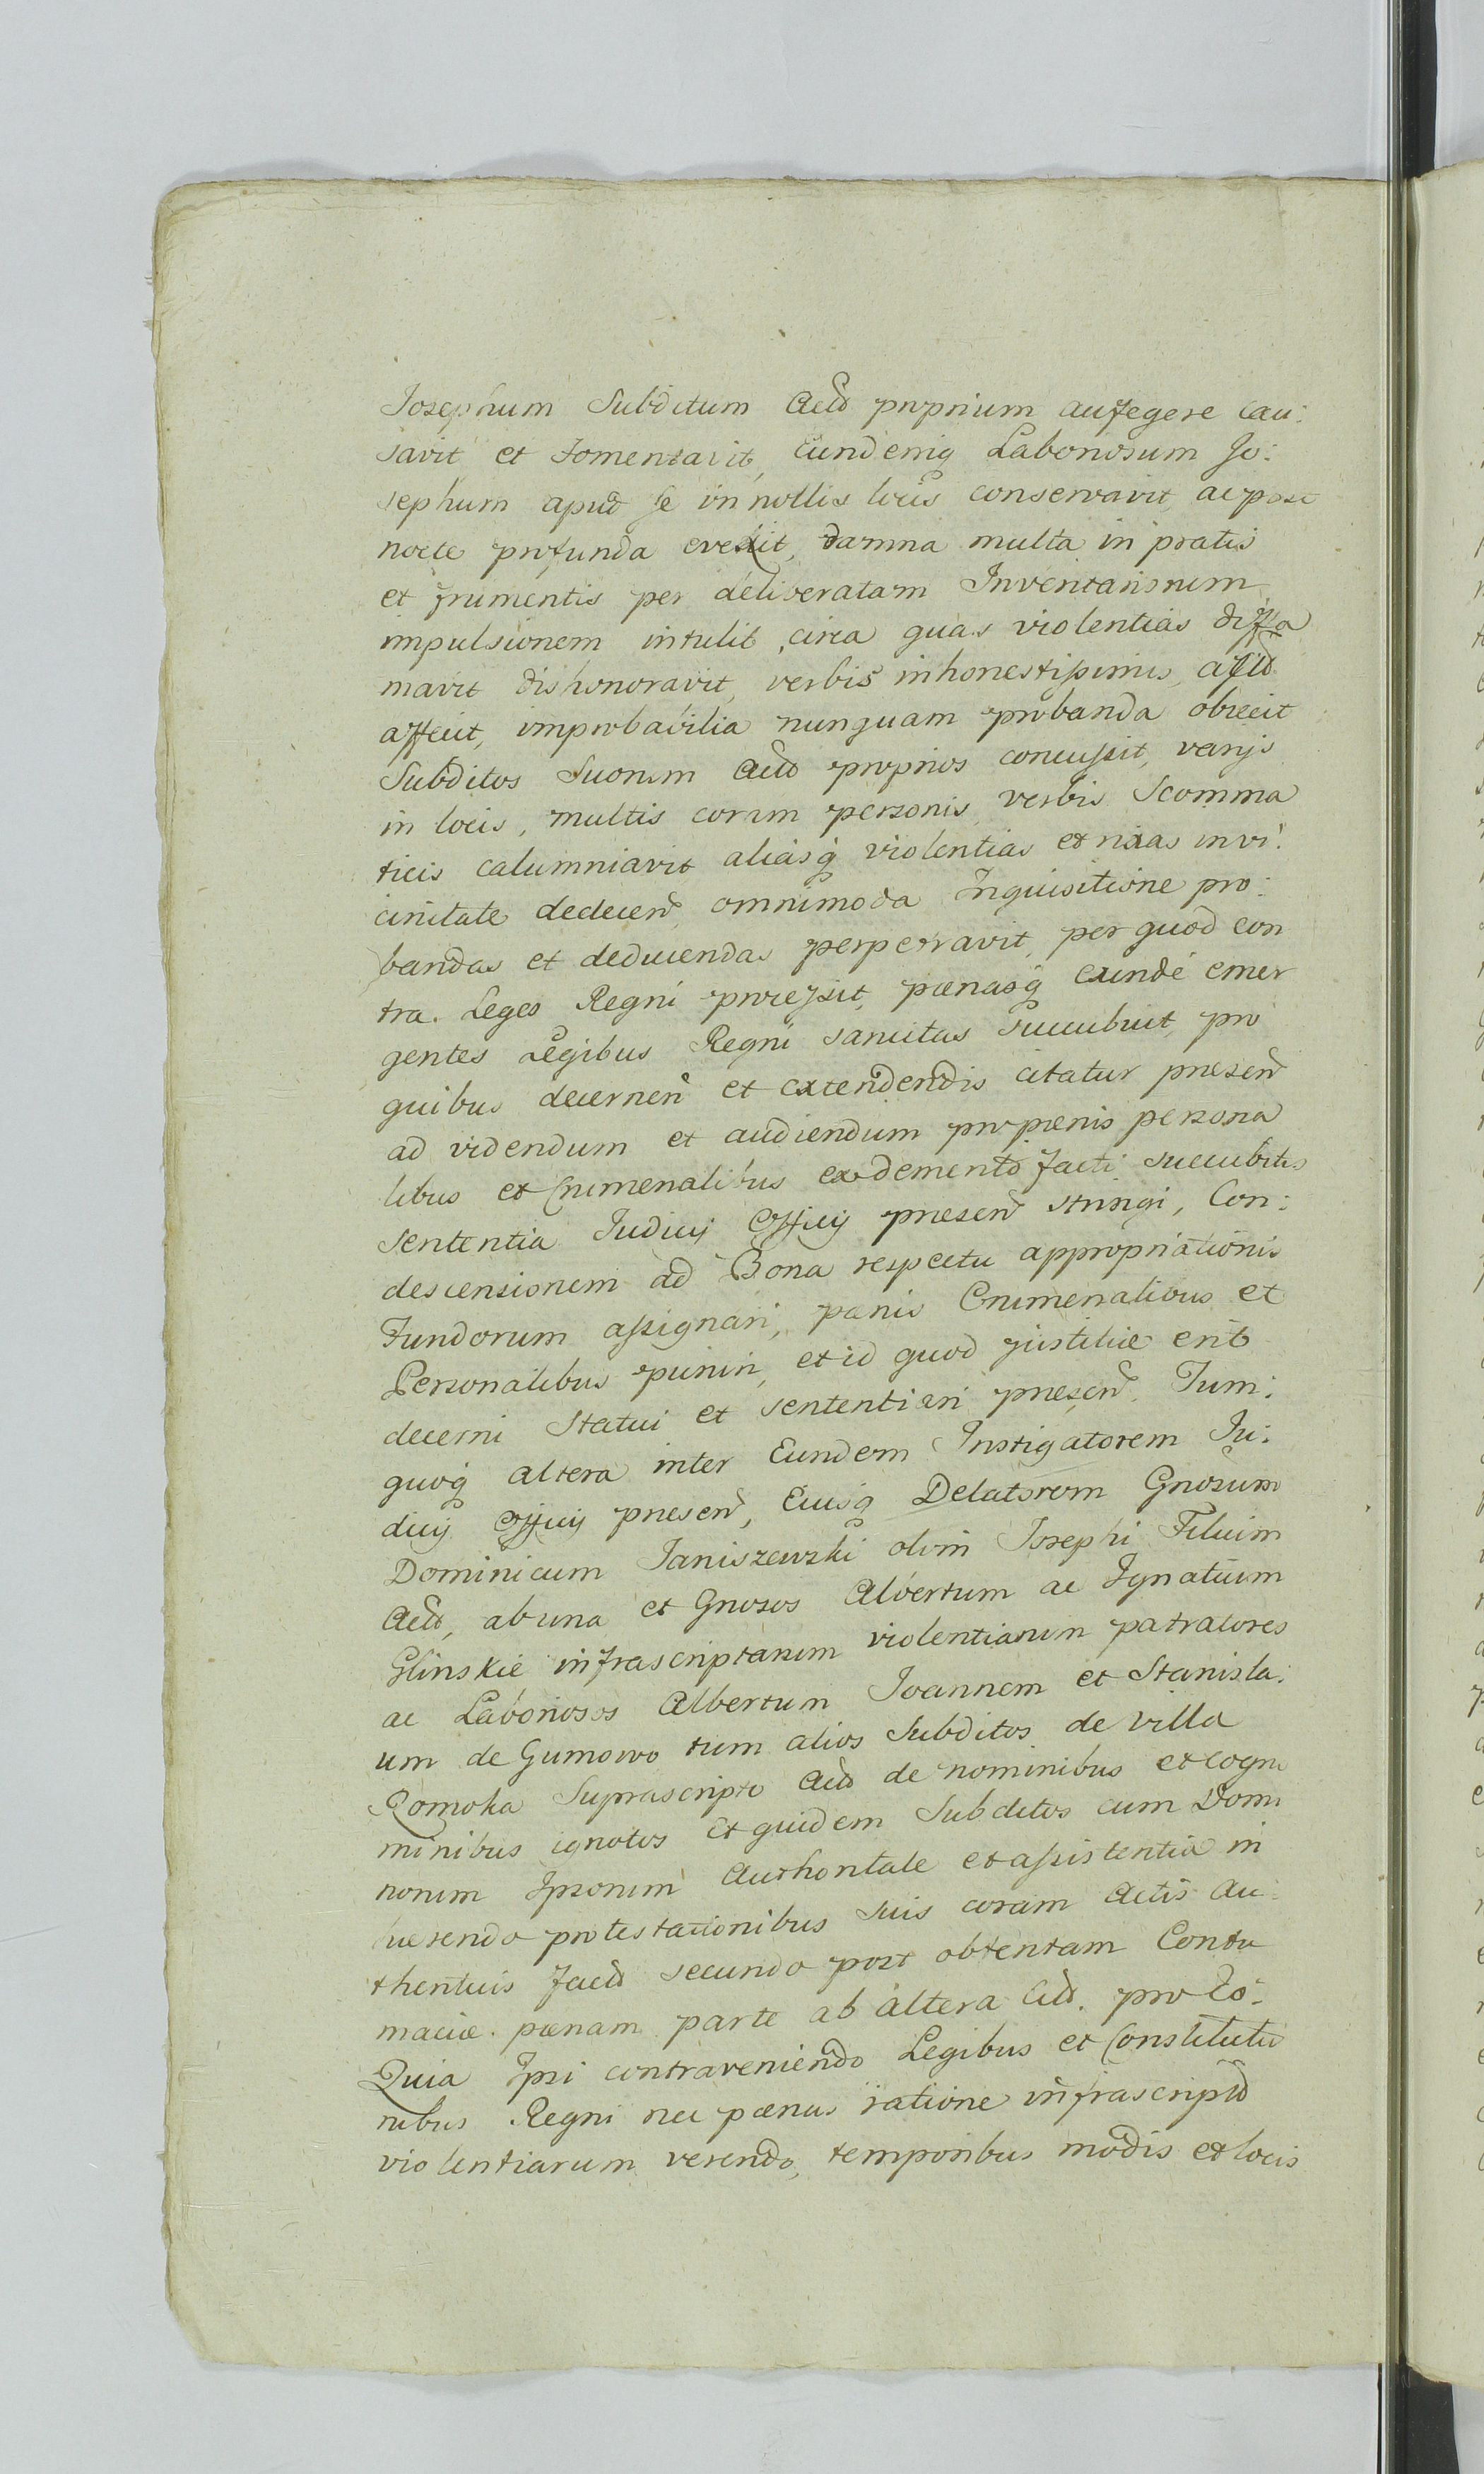 Josephum Subditum Actd proprium aufegere cau:
savit et fomentavit, Eundemq Laboriosum Jo:
sephum apud se in nollis locis conservavit, ac post
nocte profunda evexit, damna multa in pratis
et frumentis per deliberatam Inventariorum
impulsionem intulit, circa quas violentias diffa
mavit dishonoravit, verbis inhonestissimis, actd
affecit, improbabilia nunquam probanda obiecit
Subditos Suorum Actd proprios concussit, varijs
in locis, multis coram personis verbis Scomma
ticis calumniavit aliasq violentias et rixas in vi:
cinitate dedecend omnimoda Inquisitione pro:
bandas et deducendas perpetravit, per quod con
tra Leges Regni processit, pœnasq exinde emer
gentes Legibus Regni sancitas succubuit, pro
quibus decernend et extendendis citatur presend
ad videndum et audiendum pro pœnis persona
libus et Crimenalibus ex demerito facti succubitis
sententia Judicij Officij presend stringi, Con:
descensionem ad Bona respectu appropriationis
Fundorum assignari, pœnis Crimenalibus et
Personalibus puniri, et id quod justitiæ erit
decerni Statui et sententiari presend. Tum:
quoq altera inter Eundem Instigatorem Ju:
dicij Officij presend, Eiusq Delatorem Gnosum
Dominicum Janiszewski olim Josephi Filium
Actd, ab una et Gnosos Albertum ac Ignatium
Glinskie infrascriptarum violentiarum patratores
ac Laboriosos Albertum Joannem et Stanisla:
um de Gumowo tum alios Subditos de villa
Romoka Suprascripto Actd de nominibus et cogno
minibus ignotos et quidem Subditos cum Domi
norum Ipsorum Authoritate et assistentia in
hærendo protestationibus suis coram Actis Au:
thenticis factd secundo post obtentam Contu
maciæ pœnam parte ab altera Citd. pro Eo:
Quia Ipsi contraveniendo Legibus et Constitutio
nibus Regni nec pœnas ratione infrascriptd
violentiarum verendo, temporibus modis et locis